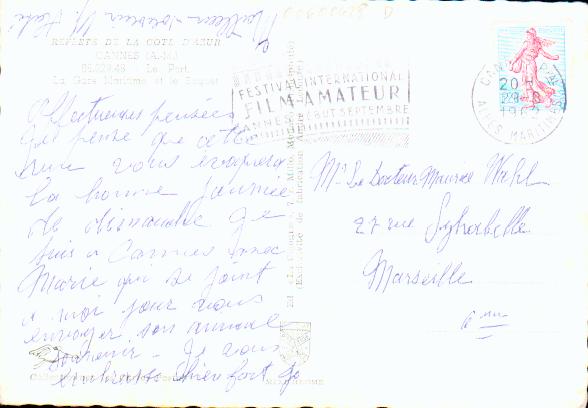 Meilleur souvenir
REFLETS DE LA COTE D'AZUR
CANNES (A.-M.)
Le Port
La Gare Maritime et le Suquet
Affectueuses pensées
Je pense que cette
vue vous évoquera
la bonne journée
de dimanche Je
suis à Cannes avec
Marie qui se joint
à moi pour vous
envoyer son amical
souvenir - Je vous
embrasse bien fort
FESTIVAL INTERNATIONAL
FILM-AMATEUR
CANNES DEBUT SEPTEMBRE
CANNES
20
ALPES MARITIMES
Mr Le Docteur Maurice Wahl
27 rue Sylvabelle
Marseille
6eme